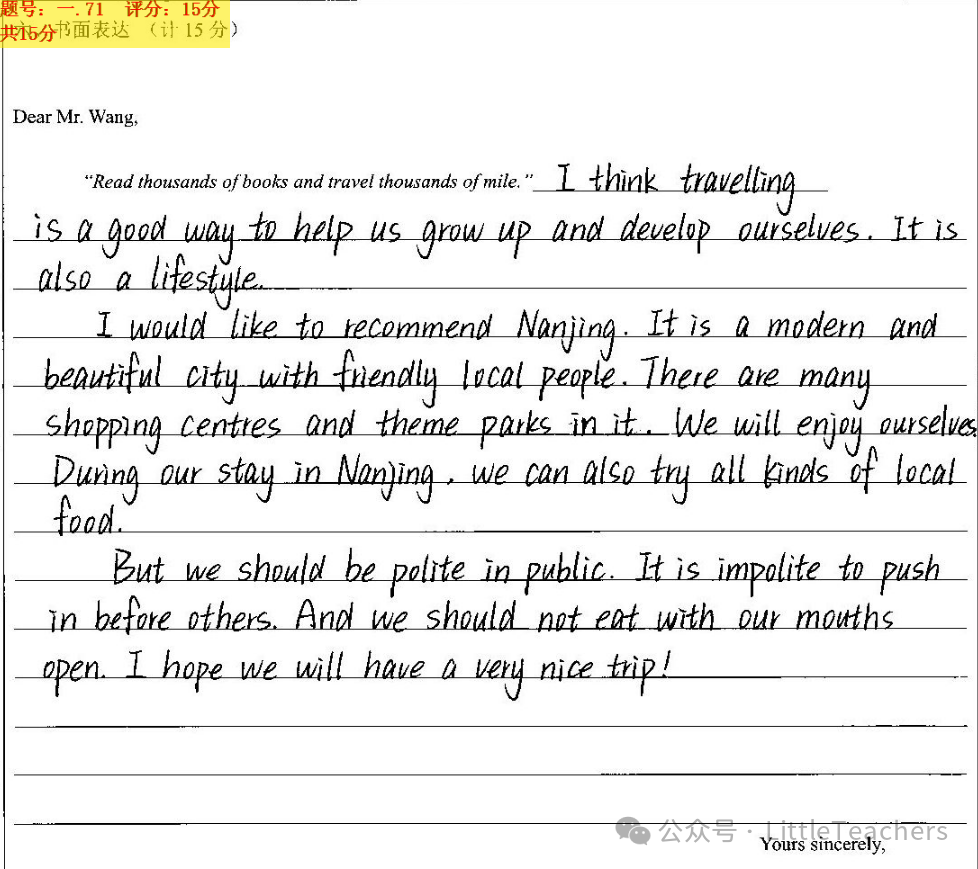 题号：一.71 评分：15分
共15分
六、书面表达 （计 15 分）
Dear Mr. Wang,
“Read thousands of books and travel thousands of mile.” I think travelling
is a good way to help us grow up and develop ourselves. It is
also a lifestyle.
I would like to recommend Nanjing. It is a modern and
beautiful city with friendly local people. There are many
shopping centres and theme parks in it. We will enjoy ourselves.
During our stay in Nanjing, we can also try all kinds of local
food.
But we should be polite in public. It is impolite to push
in before others. And we should not eat with our mouths
open. I hope we will have a very nice trip!
公众号 · LittleTeachers
Yours sincerely,